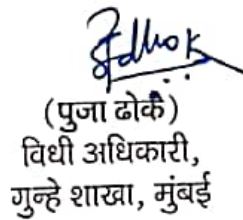 (पुजा ढोके)
विधी अधिकारी,
गुन्हे शाखा, मुंबई